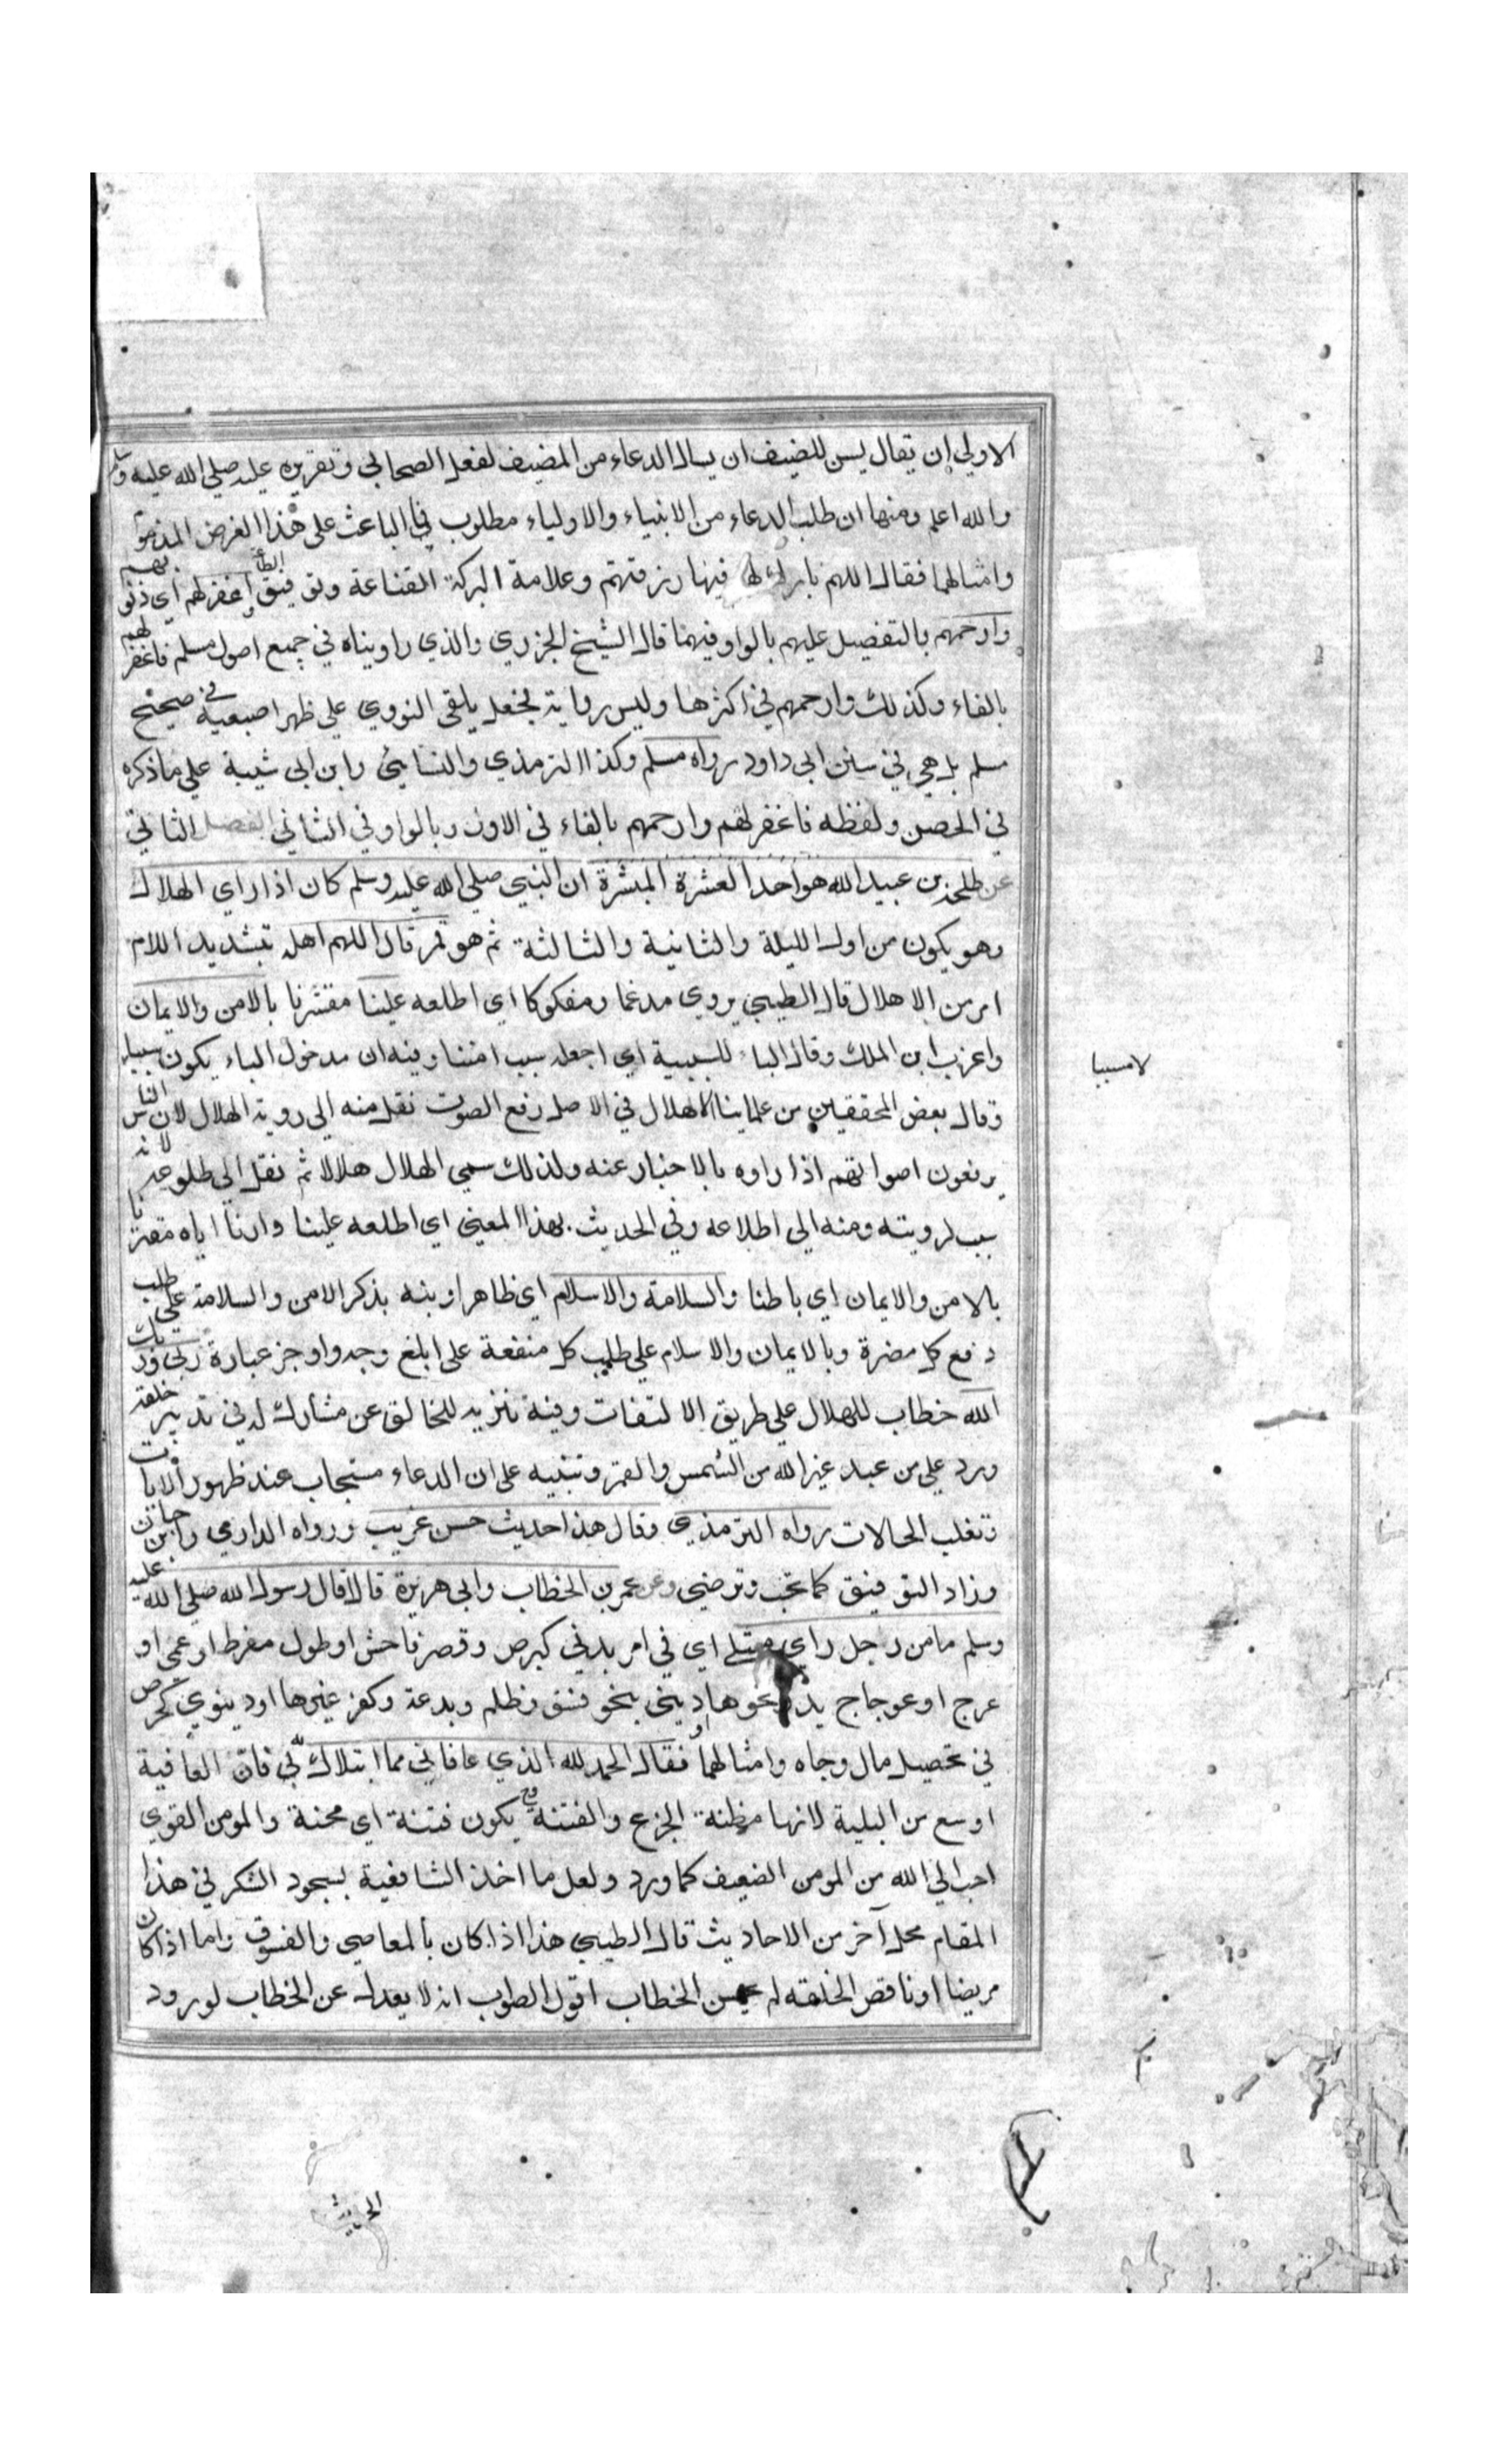 الاولي ان يقال يسن للضيف ان يسال الدعاء من المضيف لفعل الصحابي وتقريره عليه صلي الله عليه وسلم
والله اعلم ومنها ان طلب الدعاء من الانبياء والاولياء مطلوب في الباعث على هذا الغرض
وامثالهما فقال اللهم بارك لهم فيما رزقتهم وعلامة البركة القناعة وتوفيق الطاعة واغفرلهم اي ذنوبهم
وارحمهم بالتفضيل عليهم بالواو فيهما قال الشيخ الجزري والذي راويناه في جميع اصول مسلم فاغفر لهم
بالفاء وكذلك وارحمهم في اكثرها وليس رواية فجعل يلقي النووي علي ظهر اصبعيه في صحيح
مسلم بل هي في سنن ابي داود رواه مسلم وكذا الترمذي والنسايي وابن ابي شيبة علي ماذكره
في الحصن ولفظه فاغفر لهم وارحمهم بالفاء في الاول وبالواو في الثاني الفصل الثاني
عن طلحة بن عبيد الله هو احد العشرة المبشرة ان النبي صلي الله عليه وسلم كان اذا راي الهلال
وهو يكون من اول الليلة والثانية والثالثة ثم هو قمر قال اللهم اهله بتشديد اللام
امر من الاهلال قال الطيبي يروي مدغما ومفكوكا اي اطلعه علينا مقترنا بالامن والايمان
واغرب ابن الملك وقال الباء للسببية اي اجعله سبب امننا وفيه ان مدخول الباء يكون سببا
لا مسببا
وقال بعض المحققين من علماينا الاهلال في الاصل رفع الصوت نقل منه الي روية الهلال لان الناس
يرفعون اصواتهم اذا راوه بالاخبار عنه ولذلك سمي الهلال هلالا ثم نقل الي طلوعه لانه
سبب لرويته ومنه الي اطلاعه وفي الحديث بهذا المعني اي اطلعه علينا وارنا اياه مقترنا
بالامن والايمان اي باطنا والسلامة والاسلام اي ظاهرا ونبه بذكر الامن والسلامة علي طلب
دفع كل مضرة وبالايمان والاسلام علي طلب كل منفعة على ابلغ وجه واوجز عبارة ربي وربك
الله خطاب للهلال علي طريق الالتفات وفيه تنزيه للخالق عن مشارك له في تدبير خلقه
ورد علي من عبد غير الله من الشمس والقمر وتنبيه على ان الدعاء مستجاب عند ظهور الايات
وتغلب الحالات رواه الترمذي وقال هذا حديث حسن غريب ورواه الدارمي وابن حبان
وزاد التوفيق كما تحب وترضي وعن عمر بن الخطاب وابي هريرة قالا قال رسول الله صلي الله عليه
وسلم مامن رجل راي مبتلي اي في امر بدني كبرص وقصر فاحش او طول مفرط او عمي او
عرج او اعوجاج يد ونحوها او ديني بنحو فسق وظلم وبدعة وكفر وغيرها او دينوي كحرص
في تحصيل مال وجاه وامثالهما فقال الحمد لله الذي عافاني مما ابتلاك به فان العافية
اوسع من البلية لانها مظنة الجزع والفتنة وح يكون فتنة اي محنة والمومن القوي
احب الي الله من المومن الضعيف كما ورد ولعل ما اخذ الشافعية لسجود الشكر في هذا
المقام محل آخر من الاحاديث قال الطيبي هذا اذا كان بالمعاصي والفسوق واما اذا كان
مريضا او ناقص الخلقه لم يحسن الخطاب اقول الصواب انه لا يعدل عن الخطاب لورود
الحديث